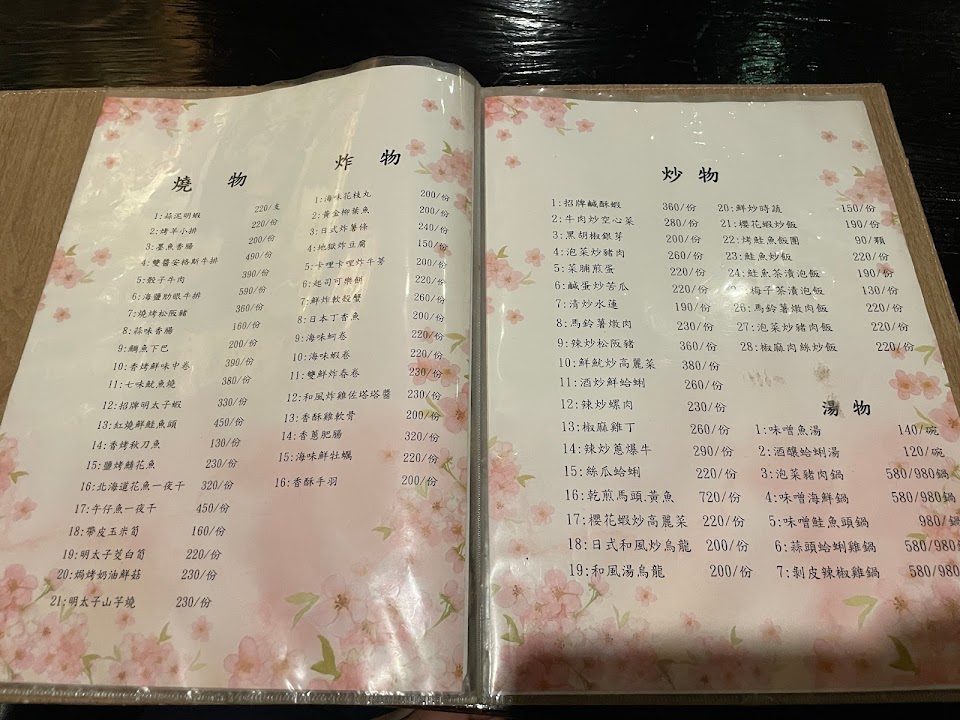 燒 物
1:蒜泥明蝦 220/支
2:烤羊小排 220/份
3:墨魚香腸 200/份
4:雙醬安格斯牛排 490/份
5:骰子牛肉 390/份
6:海鹽肋眼牛排 590/份
7:燒烤松阪豬 360/份
8:蒜味香腸 160/份
9:鯛魚下巴 200/份
10:香烤鮮味中卷 390/份
11:七味魷魚燒 380/份
12:招牌明太子蝦 330/份
13:紅燒鮮鮭魚頭 450/份
14:香烤秋刀魚 130/份
15:鹽烤鯖花魚 230/份
16:北海道花魚一夜干 320/份
17:午仔魚一夜干 450/份
18:帶皮玉米筍 160/份
19:明太子茭白筍 220/份
20:焗烤奶油鮮菇 230/份
21:明太子山芋燒 230/份
炸 物
1:海味花枝丸 200/份
2:黃金柳葉魚 200/份
3:日式炸薯條 240/份
4:地獄炸豆腐 150/份
5:卡哩卡哩炸牛蒡 200/份
6:起司可樂餅 220/份
7:鮮炸軟殼蟹 260/份
8:日本丁香魚 200/份
9:海味蚵卷 220/份
10:海味蝦卷 220/份
11:雙鮮炸春卷 230/份
12:和風炸雞佐塔塔醬 230/份
13:香酥雞軟骨 200/份
14:香蔥肥腸 320/份
15:海味鮮牡蠣 220/份
16:香酥手羽 200/份
炒 物
1:招牌鹹酥蝦 360/份
2:牛肉炒空心菜 280/份
3:黑胡椒銀芽 200/份
4:泡菜炒豬肉 260/份
5:菜脯煎蛋 220/份
6:鹹蛋炒苦瓜 220/份
7:清炒水蓮 190/份
8:馬鈴薯燉肉 230/份
9:辣炒松阪豬 360/份
10:鮮魷炒高麗菜 380/份
11:酒炒鮮蛤蜊 260/份
12:辣炒螺肉 230/份
13:椒麻雞丁 260/份
14:辣炒蔥爆牛 290/份
15:絲瓜蛤蜊 220/份
16:乾煎馬頭.黃魚 720/份
17:櫻花蝦炒高麗菜 220/份
18:日式和風炒烏龍 200/份
19:和風湯烏龍 200/份
20:鮮炒時蔬 150/份
21:櫻花蝦炒飯 190/份
22:烤鮭魚飯團 90/顆
23:鮭魚炒飯 220/份
24:鮭魚茶漬泡飯 190/份
梅子茶漬泡飯 130/份
26:馬鈴薯燉肉飯 220/份
27:泡菜炒豬肉飯 220/份
28:椒麻肉絲炒飯 220/份
湯 物
1:味噌魚湯 140/碗
2:酒釀蛤蜊湯 120/碗
3:泡菜豬肉鍋 580/980鍋
4:味噌海鮮鍋 580/980鍋
5:味噌鮭魚頭鍋 980/鍋
6:蒜頭蛤蜊雞鍋 580/980
7:剝皮辣椒雞鍋 580/980